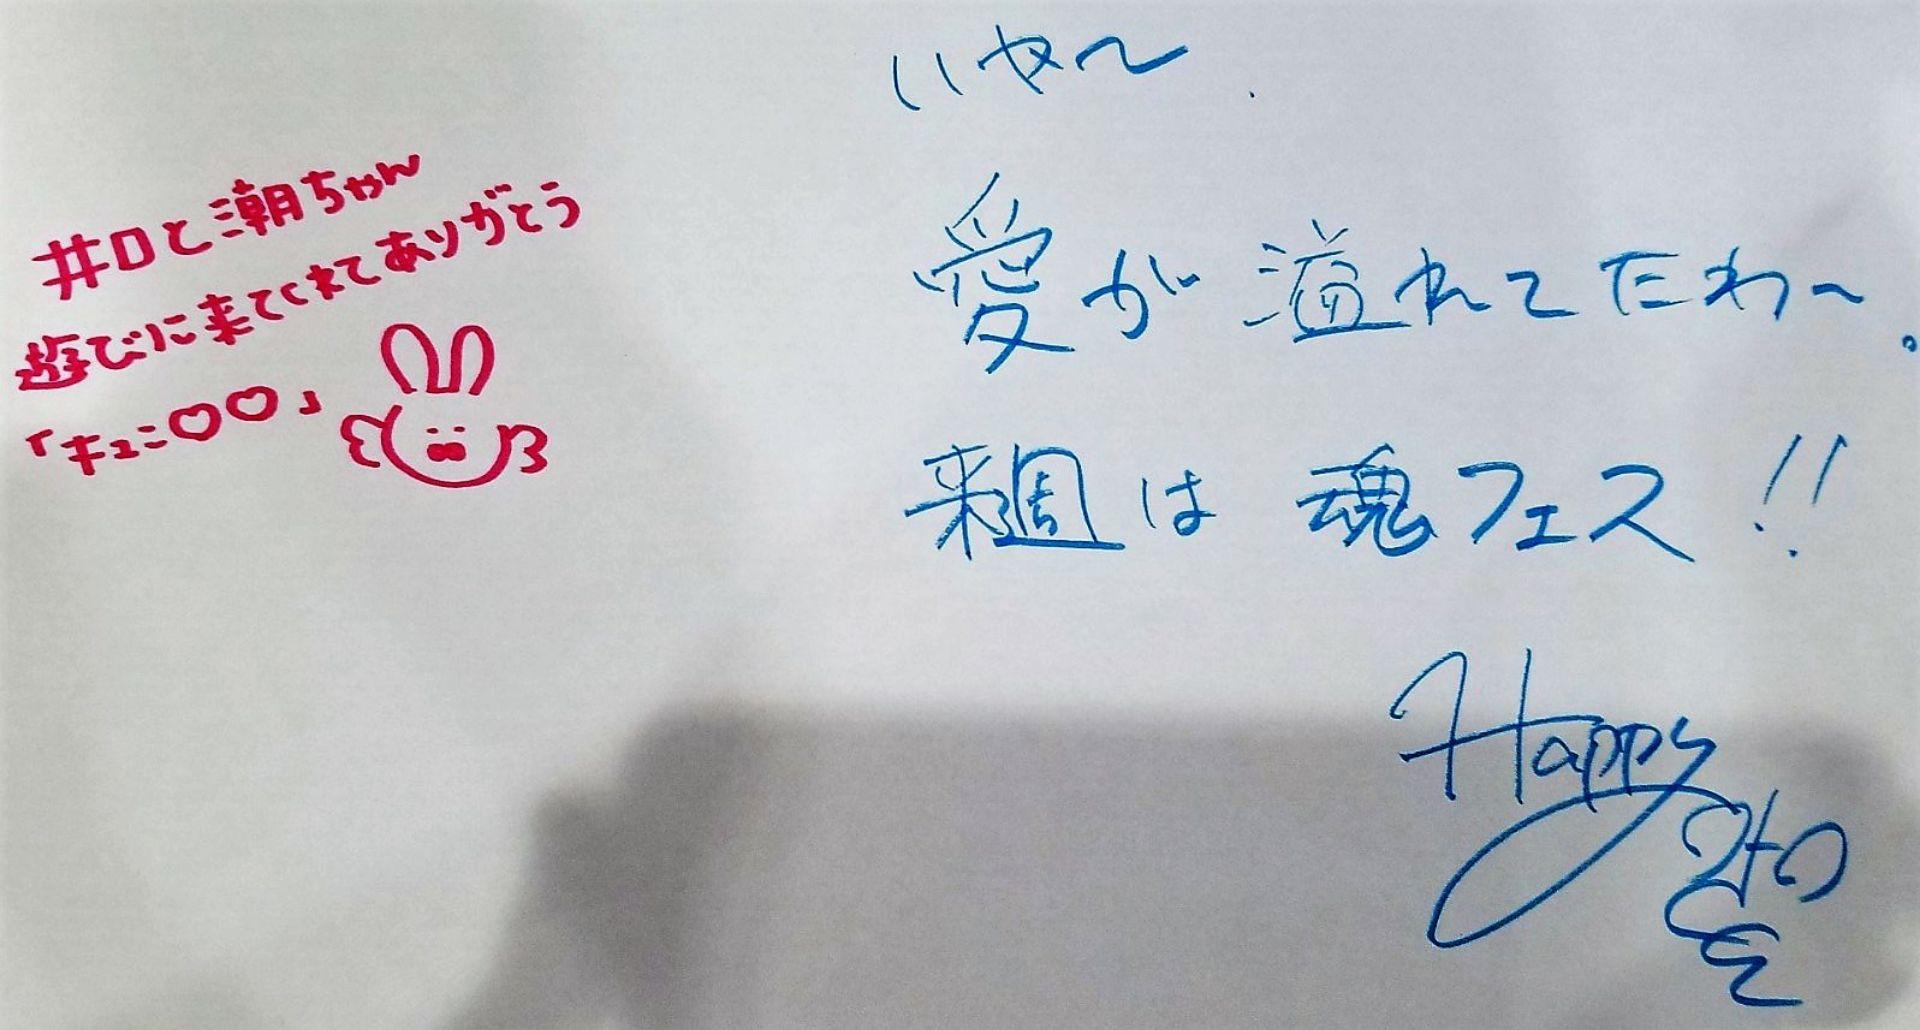 井口と潮ちゃん
遊びに来てくれてありがとう
「キュン♡♡」
いや〜
愛が溢れてたわ〜。
来週は魂フェス!!
Happy